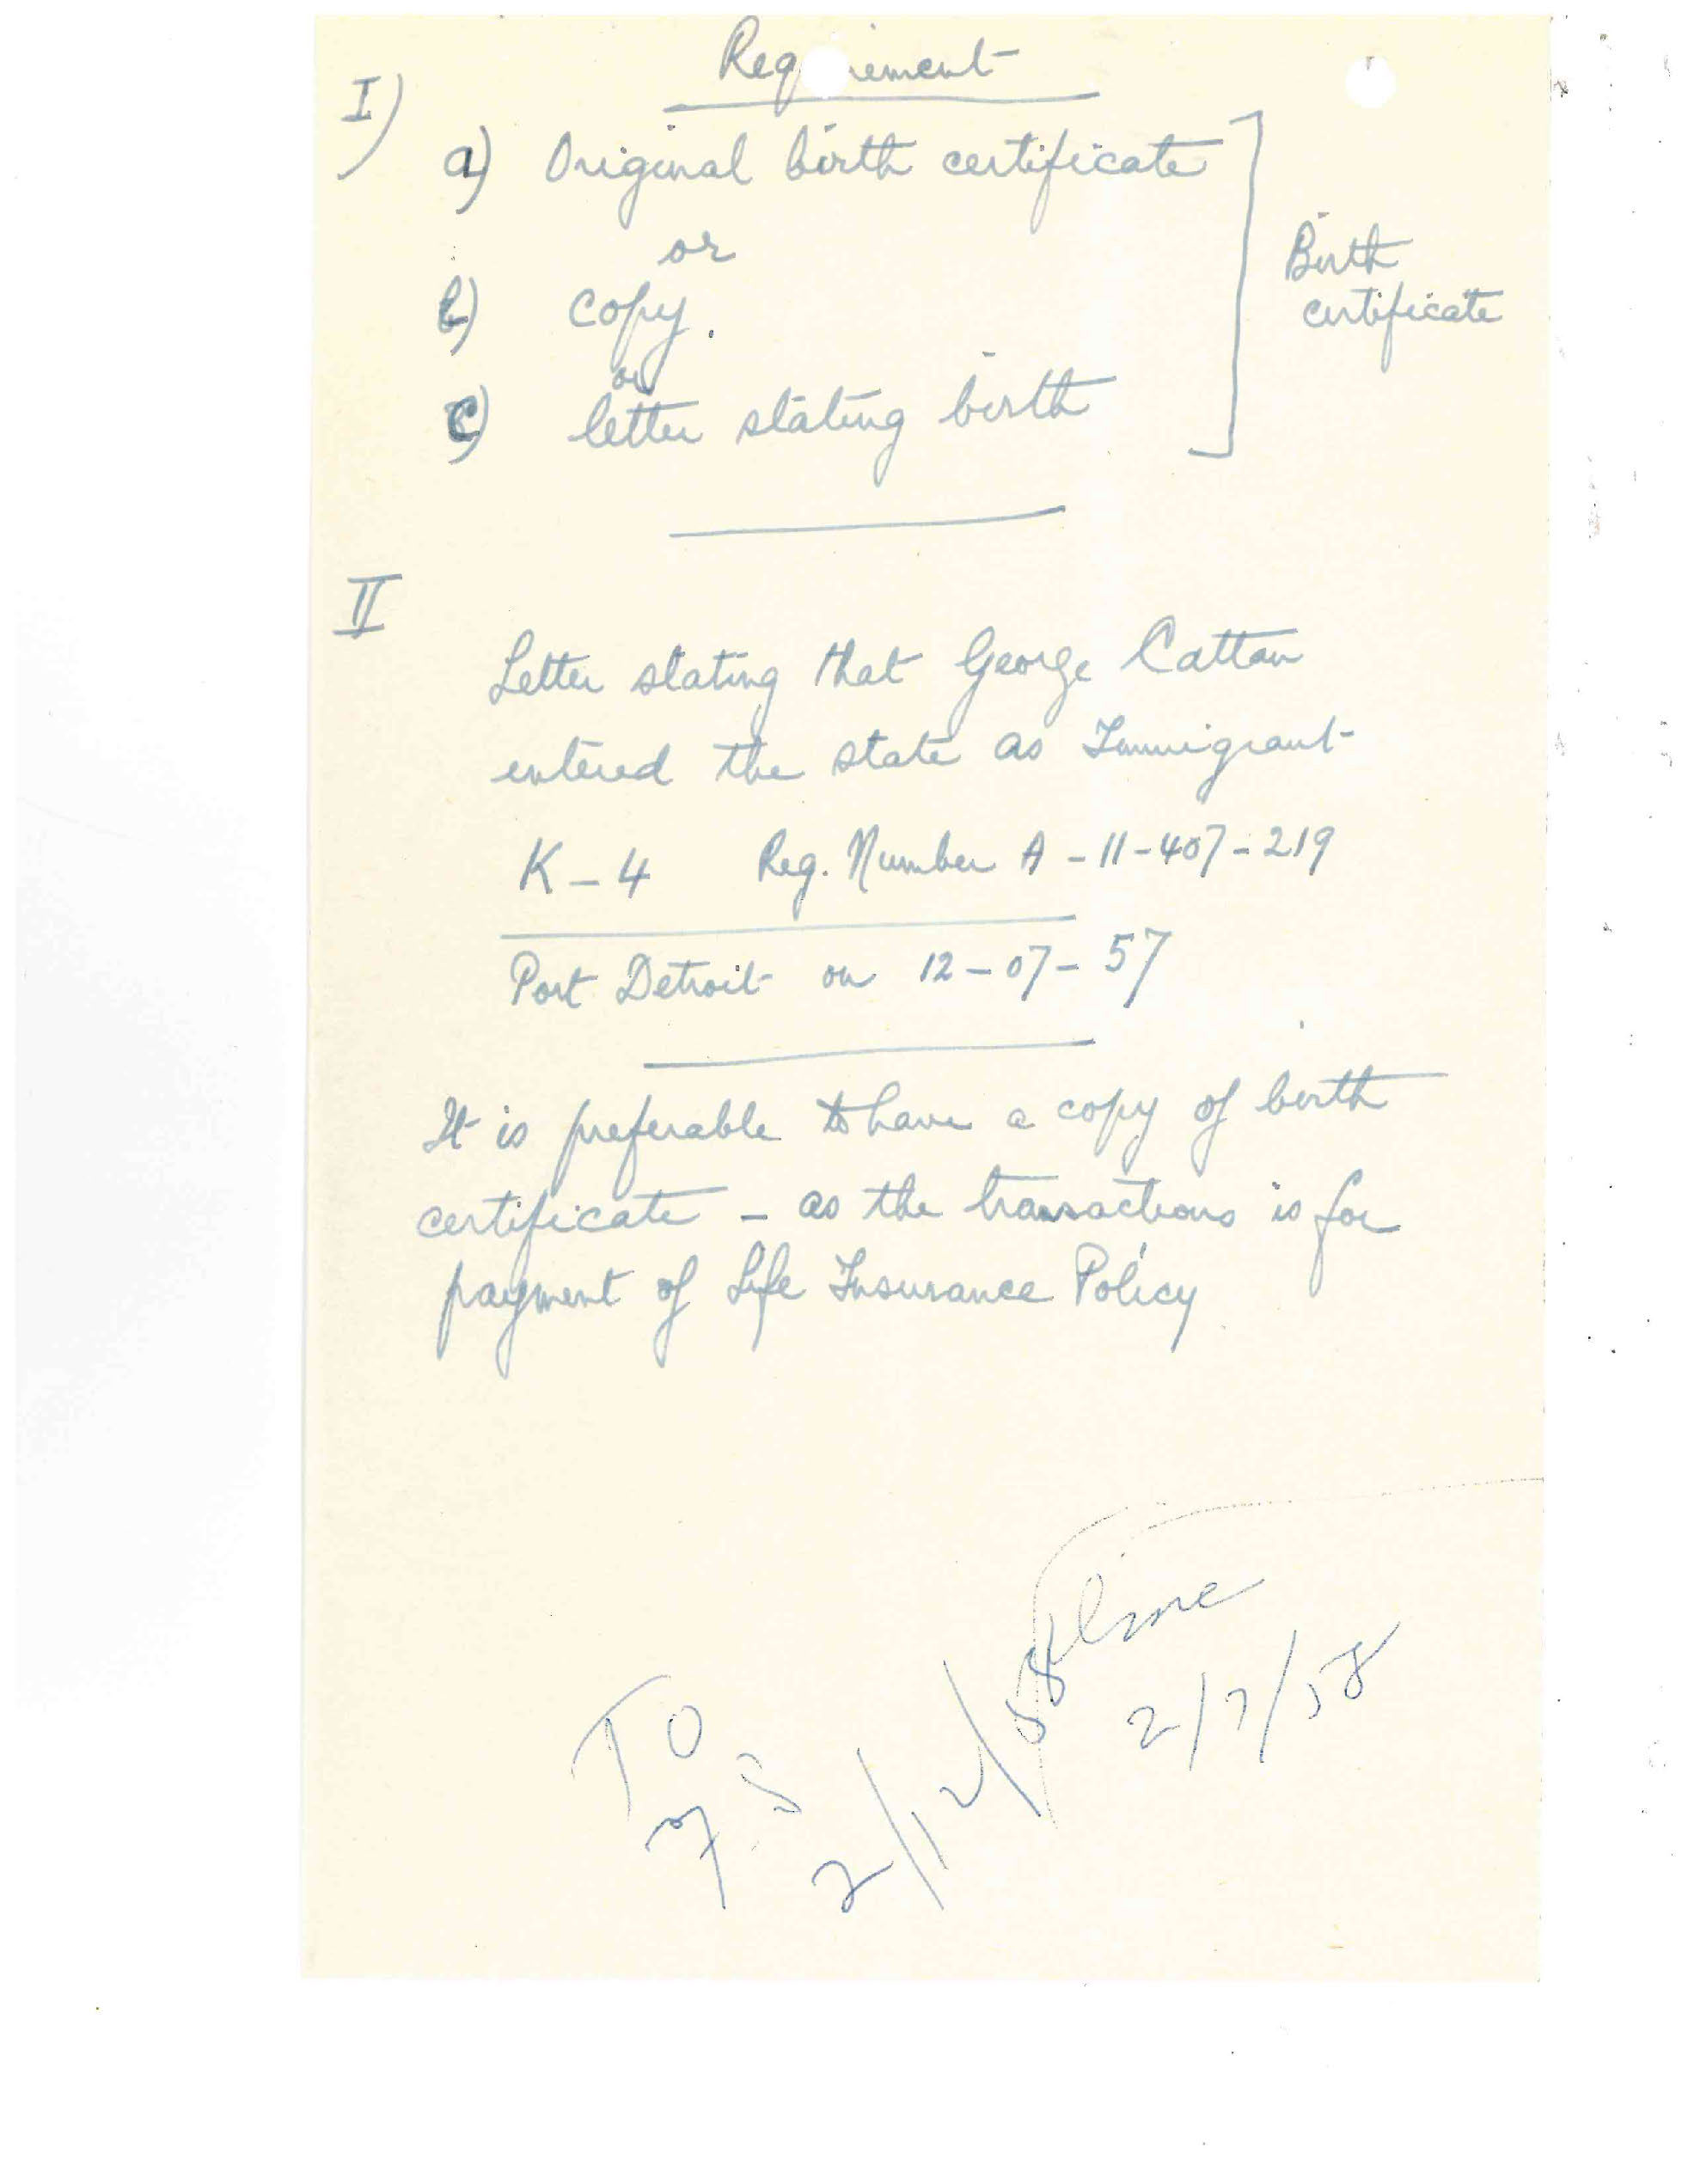 Requirement
I)
a) Original birth certificate
or
b) copy.
or
c) letter stating birth
Birth
certificate
II
Letter stating that George Cattan
entered the state as Immigrant
K-4 Reg. Number A-11-407-219
Port Detroit on 12-07-57
It is preferable to have a copy of birth
certificate - as the transactions is for
payment of Life Insurance Policy
2/7/58
TO
2/12/58